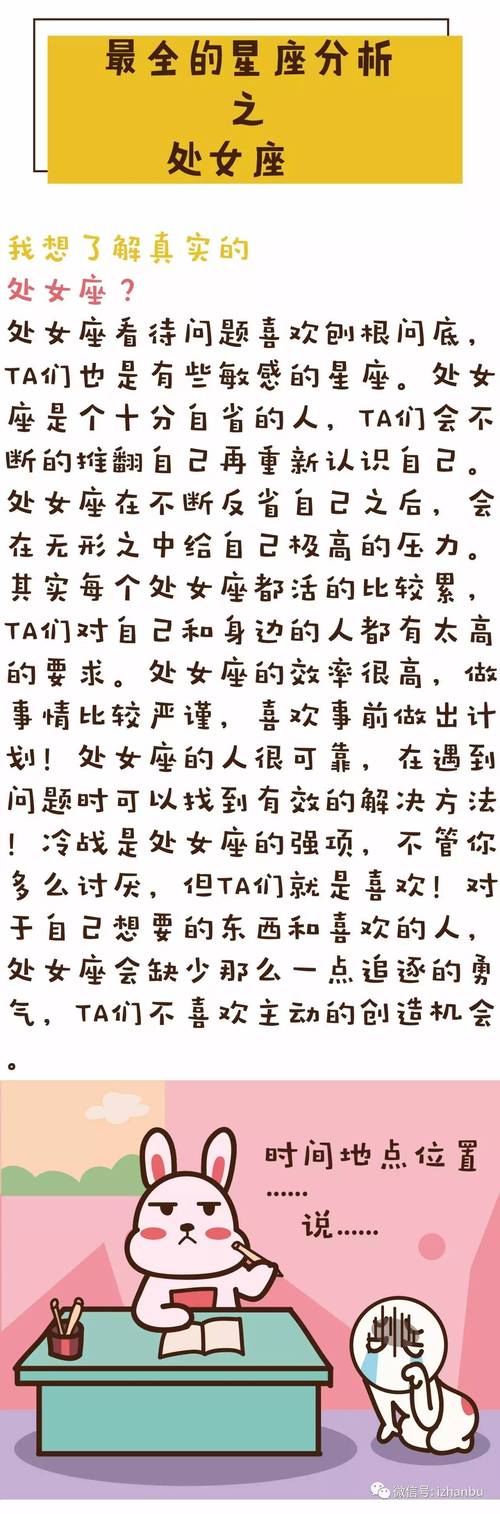 最全的星座分析
之
处女座
我想了解真实的
处女座？
处女座看待问题喜欢刨根问底，
TA们也是有些敏感的星座。处女
座是个十分自省的人，TA们会不
断的推翻自己再重新认识自己。
处女座在不断反省自己之后，会
在无形之中给自己极高的压力。
其实每个处女座都活的比较累，
TA们对自己和身边的人都有太高
的要求。处女座的效率很高，做
事情比较严谨，喜欢事前做出计
划！处女座的人很可靠，在遇到
问题时可以找到有效的解决方法
！冷战是处女座的强项，不管你
多么讨厌，但TA们就是喜欢！对
于自己想要的东西和喜欢的人，
处女座会缺少那么一点追逐的勇
气，TA们不喜欢主动的创造机会
。
时间地点位置
......
说......
微信号: izhanbu